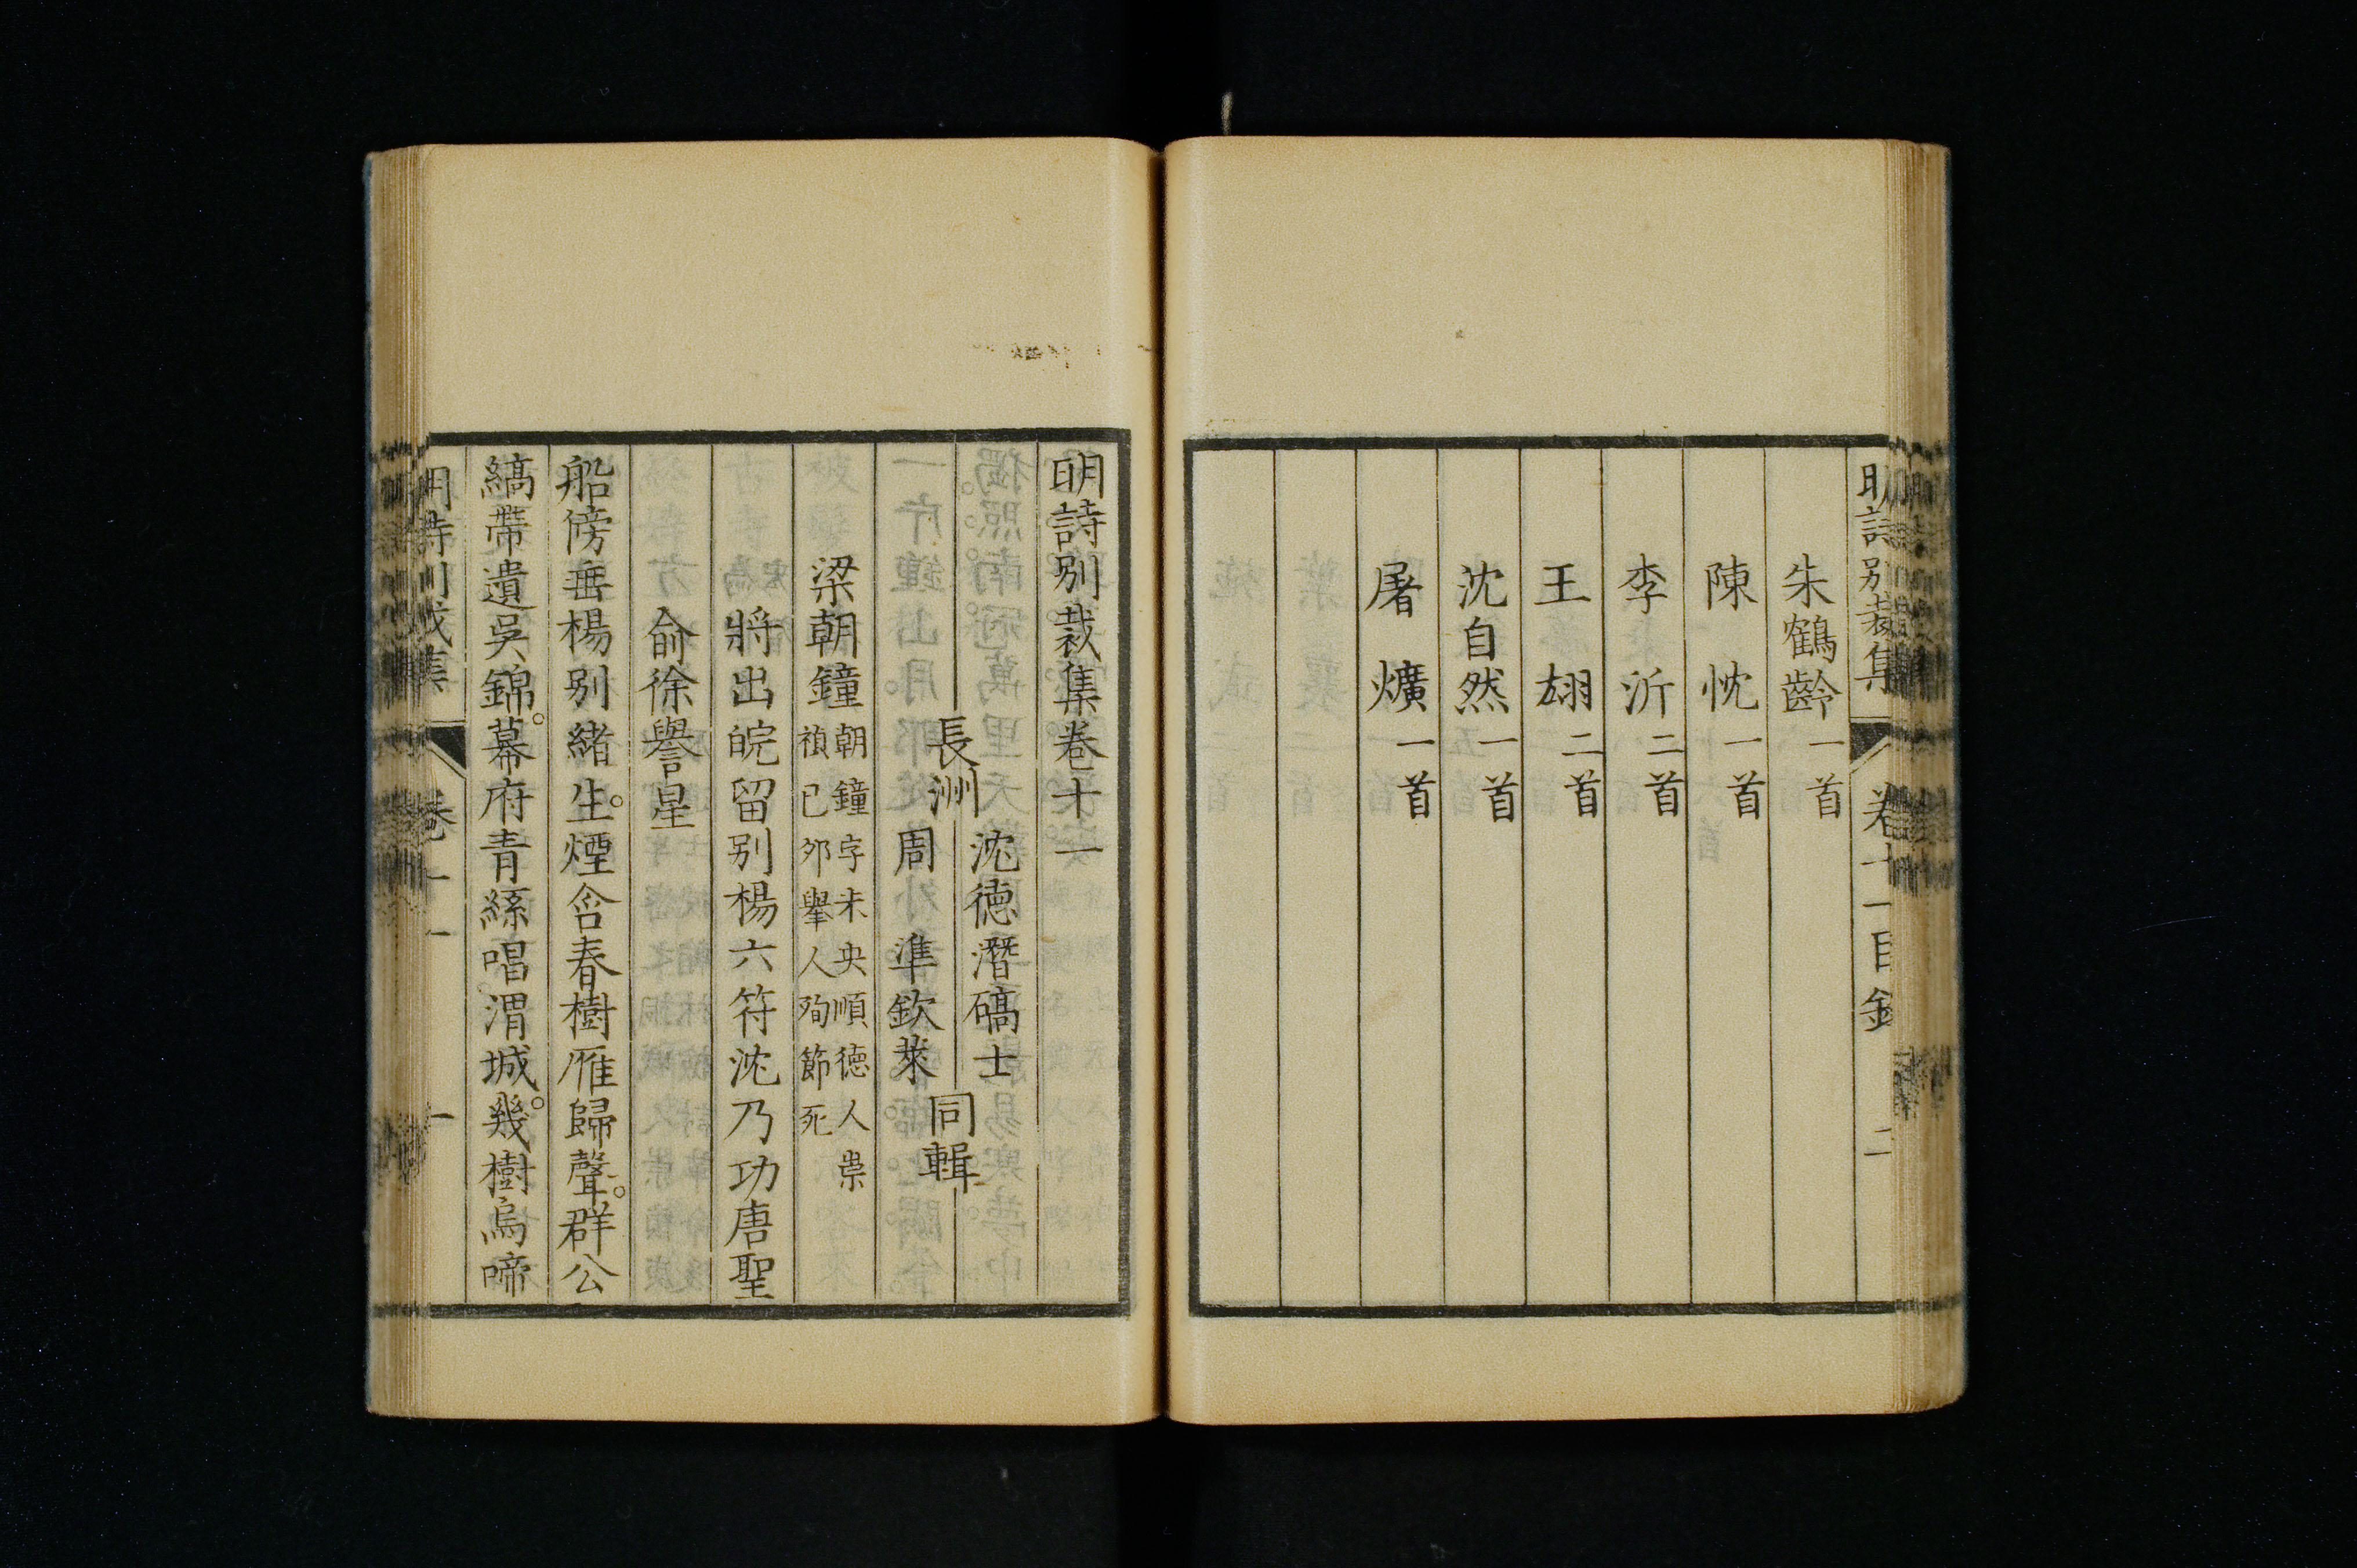 明詩別裁集　卷十一目錄　二
朱鶴齡一首
陳忱一首
李沂二首
王翃二首
沈自然一首
屠爌一首
明詩別裁集卷十一
長洲
沈德潛碻士
周準欽萊
同輯
梁朝鐘
朝鐘字未央順德人崇
禎己夘舉人殉節死
將出皖留别楊六符沈乃功唐聖
俞徐譽星
船傍垂楊别緒生煙含春樹雁歸聲群公
縞帶遺吳錦幕府青絲唱渭城幾樹烏啼
明詩別裁集　卷十一　一